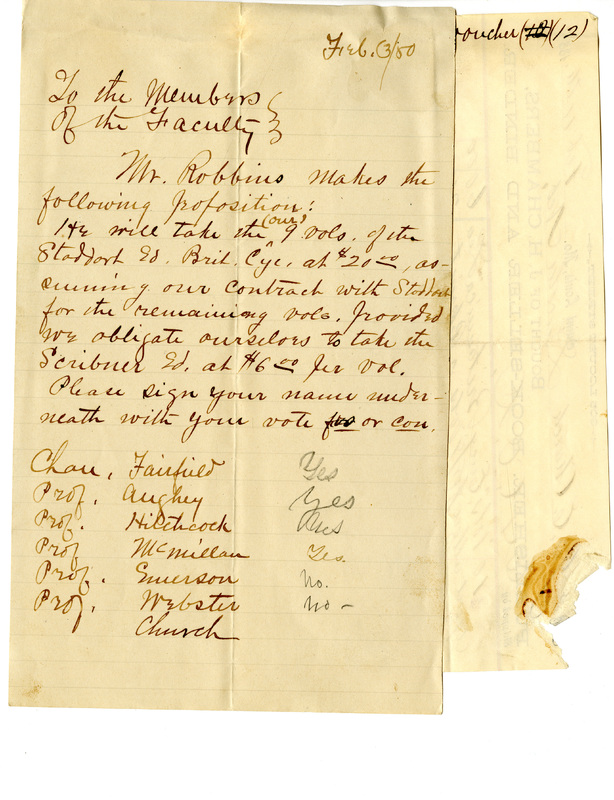 Feb. 13/80
voucher (12) (12)
To the Members
of the Faculty
Mr. Robbins makes the
following proposition:
He will take the (our) 9 vols. of the
Stoddart Ed. Brit. Cyc. at $20 00, as-
suming our contract with Stoddart
for the remaining vols. provided
we obligate ourselves to take the
Scribner Ed. at $6 00 per vol.
Please sign your name under-
neath with your vote pro or con.
Chan. Fairfield Yes
Prof. Aughey Yes
Prof. Hitchcock
Prof McMillan Yes.
Prof. Emerson No.
Prof. Webster no -
Church